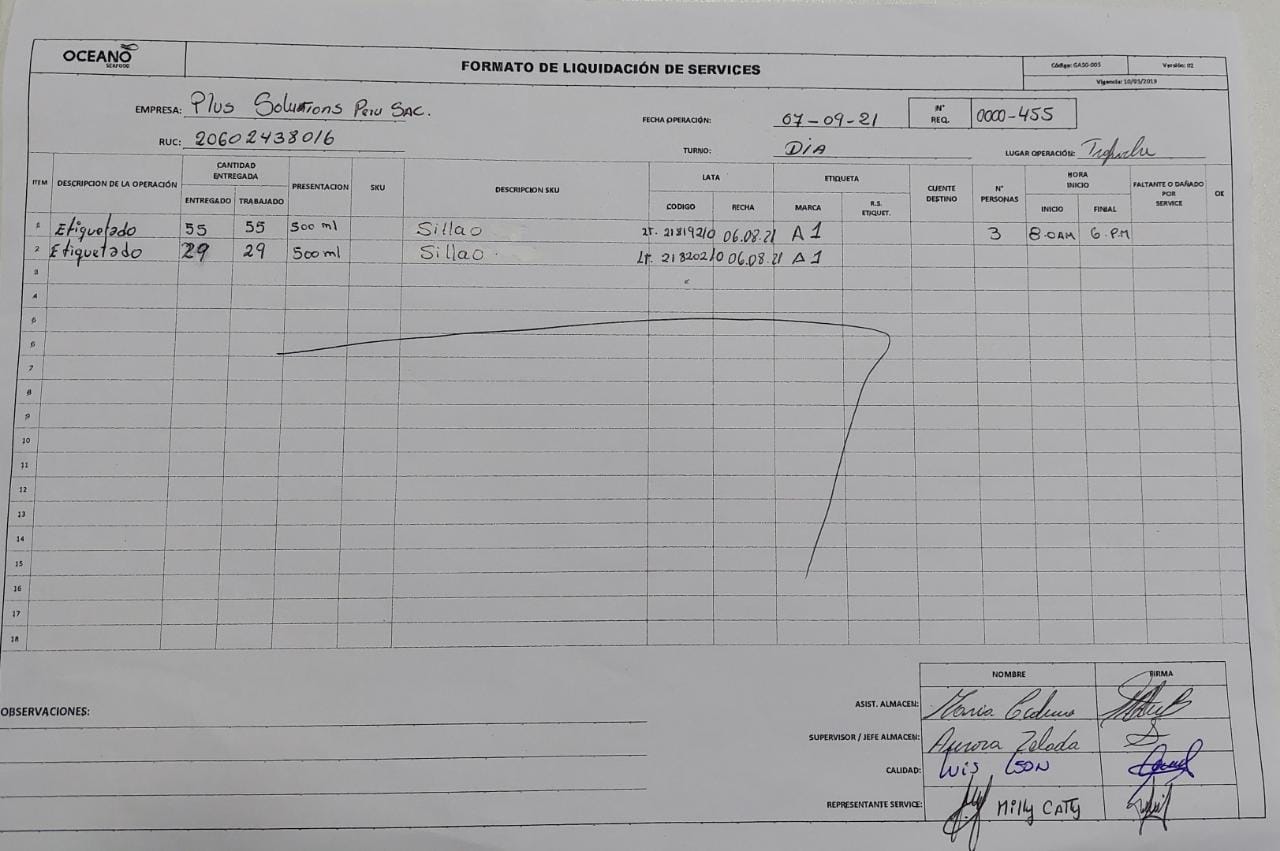 OCEANO
SEAFOOD
FORMATO DE LIQUIDACIÓN DE SERVICES
Código: GASO-005 Versión: 02
Vigencia: 10/05/2019
EMPRESA: Plus Solutions Peru SAC.
FECHA OPERACIÓN: 07-09-21
N° REQ. 0000-455
RUC: 20602438016
TURNO: DIA
LUGAR OPERACIÓN:
ITEM DESCRIPCION DE LA OPERACIÓN CANTIDAD ENTREGADA PRESENTACION SKU DESCRIPCION SKU LATA ETIQUETA CLIENTE DESTINO N° PERSONAS HORA INICIO FALTANTE O DAÑADO POR SERVICE OK
ENTREGADO TRABAJADO CODIGO FECHA MARCA R.S. ETIQUET. INICIO FINIAL
1 Etiquetado 55 55 500 ml Sillao 06.08.21 A1 3 8.0AM 6.PM
2 Etiquetado 29 29 500 ml Sillao Lt. 21820210 06.08.21 A1
3
4
5
6
7
8
9
10
11
12
13
14
15
16
17
18
NOMBRE FIRMA
OBSERVACIONES:
ASIST. ALMACEN: Maria
SUPERVISOR / JEFE ALMACEN: Aurora Zelada
CALIDAD: Luis
REPRESENTANTE SERVICE: Milly CATy